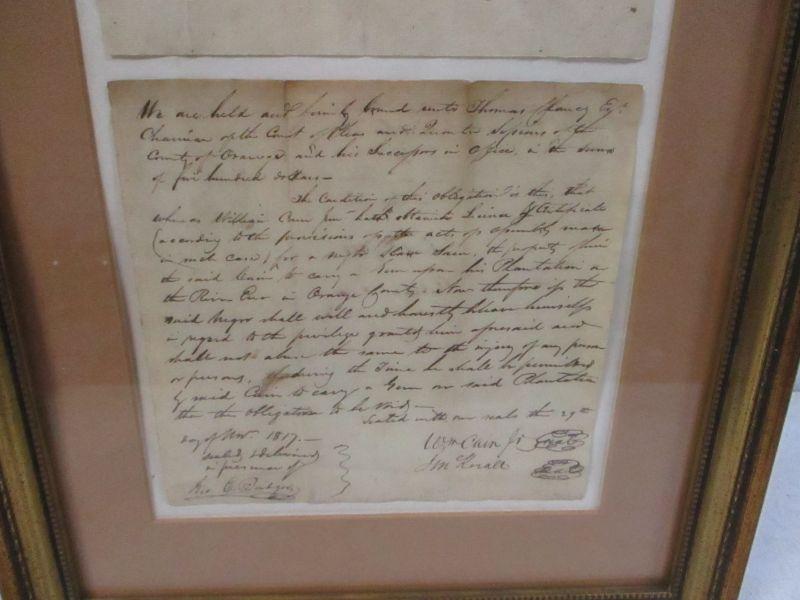 We are held and firmly bound unto Thomas Clancy Esqr.
Chairman of the Court of Pleas and Quarter Sessions of the
County of Orange and his Successors in office, in the sum
of five hundred dollars—
The Condition of this Obligation is this, that
whereas William Cain junr hath obtained Certificate
(according to the provisions of the acts of assembly made
in such case) for a negro Slave the property of him
the said Cain, to carry a Gun upon his Plantation on
the River Eno in Orange County. Now therefore if the
said Negro shall well and honestly behave himself
in regard to the privilege granted him aforesaid and
shall not abuse the same to the injury of any person
or persons, during the Time he shall be permitted
by said Cain to carry a Gun on said Plantation
then this Obligation to be Void—
Sealed with our seals the 29th
day of Nov. 1817.—
sealed & delivered
in presence of
Wm Cain Jr Seal
Seal